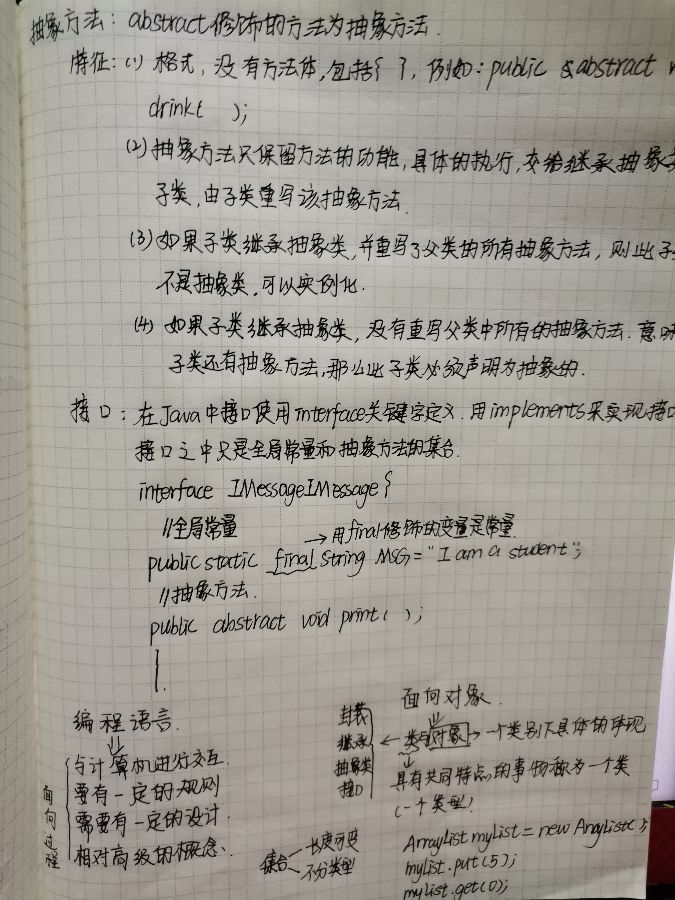 抽象方法：abstract修饰的方法为抽象方法.
特征：(1) 格式，没有方法体，包括{ }，例如：public abstract
drink( );
(2)抽象方法只保留方法的功能，具体的执行，交给继承抽象
子类，由子类重写该抽象方法.
(3)如果子类继承抽象类，并重写了父类的所有抽象方法，则此子
不是抽象类，可以实例化.
(4) 如果子类继承抽象类，没有重写父类中所有的抽象方法. 意味
子类还有抽象方法，那么此子类必须声明为抽象的.
接口：在Java中接口使用interface关键字定义. 用implements来实现接口
接口之中只是全局常量和抽象方法的集合.
interface IMessageIMessage{
//全局常量
→用final修饰的变量是常量.
public static final String MSG="I am a student";
//抽象方法.
public abstract void print( );
}.
编程语言.
与计算机进行交互.
要有一定的规则
需要有一定的设计.
相对高级的概念.
面向过程
面向对象.
封装
继承
抽象类
接口
←类与对象→一个类别下具体的体现
具有共同特点的事物称为一个类
(一个类型)
集合
长度可变
不分类型
ArrayList mylist = new
mylist.put(5);
mylist.get(0);